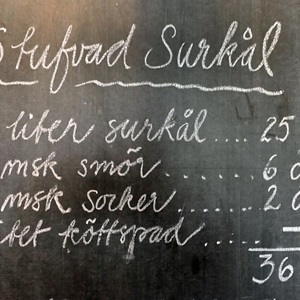 Stufvad Surkål
liter surkål .... 25
msk smör ....... 6
msk socker ..... 2
köttspad ......
36